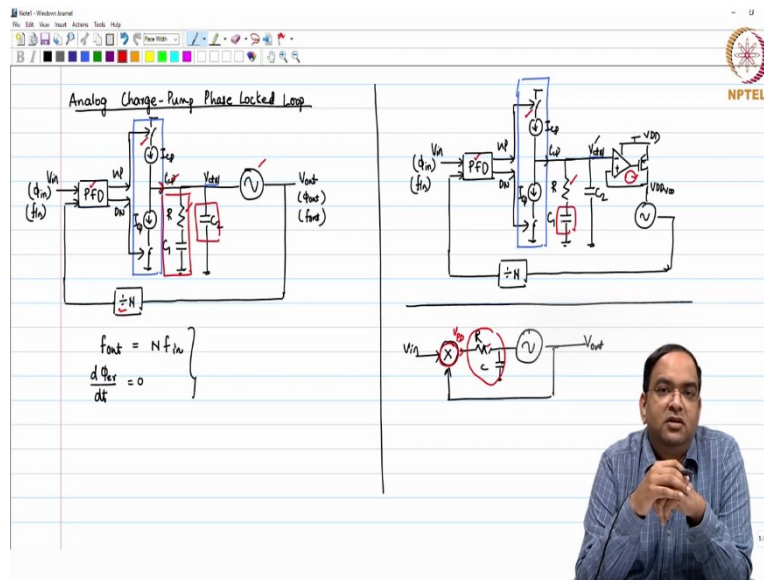 Note1 - Windows Journal
File Edit View Insert Actions Tools Help
Page Width
B I
NPTEL
Analog Charge-Pump Phase Locked Loop
Vin
(ϕin)
(fin)
PFD
UP
DN
Icp
Icp
Icp
R
C1
Vctrl
C2
Vout
(ϕout)
(fout)
÷N
fout = N fin
dϕer/dt = 0
Vin
(ϕin)
(fin)
PFD
UP
DN
Icp
Icp
Icp
R
C1
Vctrl
C2
VDD
VDDVCO
÷N
Vin
X
VPD
R
C
Vout